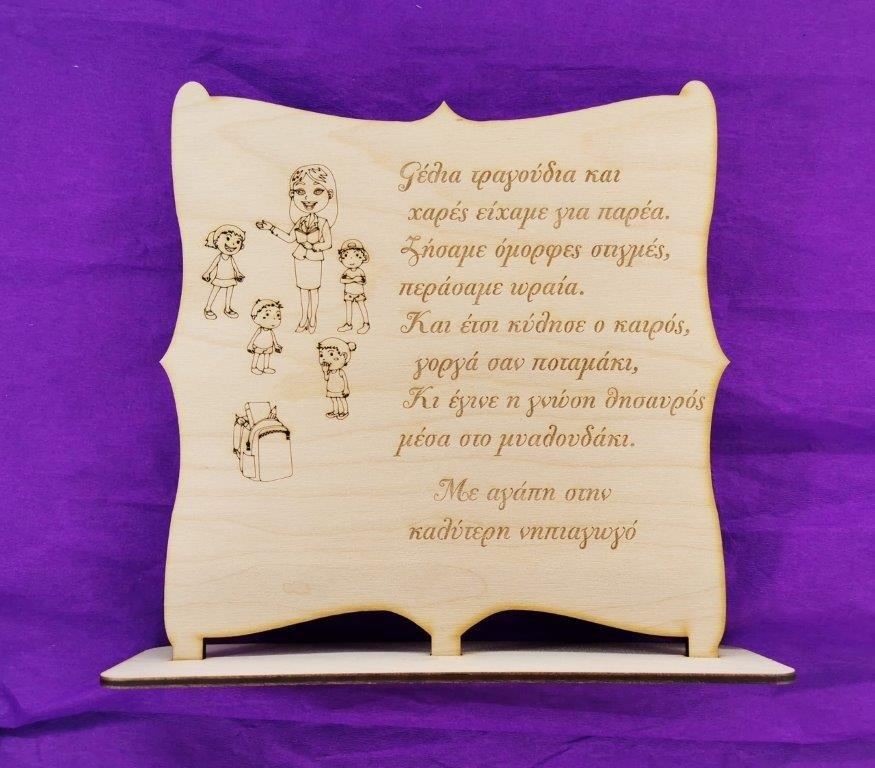 Gέλια τραγούδια και
χαρές είχαμε για παρέα.
Ζήσαμε όμορφες στιγμές,
περάσαμε ωραία.
Και έτσι κύλησε ο καιρός,
γοργά σαν ποταμάκι,
Κι έγινε η γνώση θησαυρός
μέσα στο μυαλουδάκι.
Με αγάπη στην
καλύτερη νηπιαγωγό